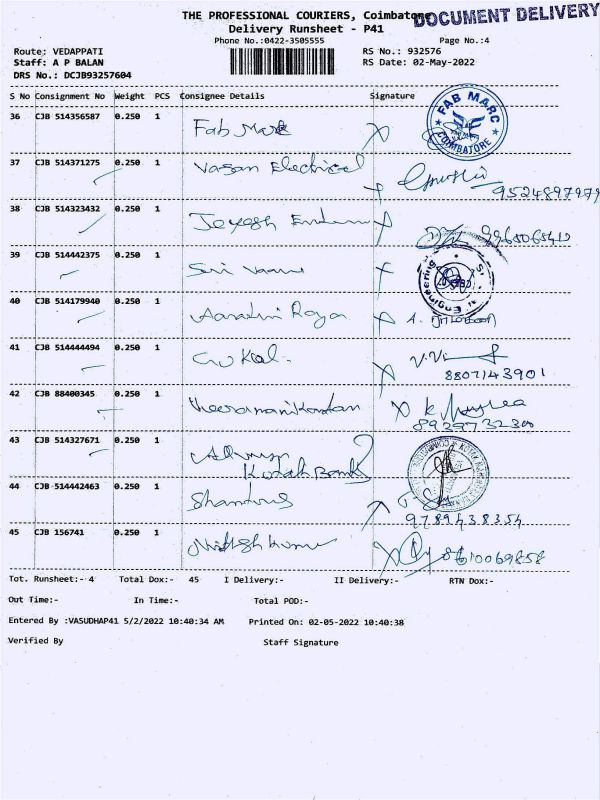 THE PROFESSIONAL COURIERS, Coimbatore
DOCUMENT DELIVERY
Delivery Runsheet - P41
Phone No.:0422-3505555 Page No.:4
Route: VEDAPPATI RS No.: 932576
Staff: A P BALAN RS Date: 02-May-2022
DRS No.: DCJB93257604
S No Consignment No Weight PCS Consignee Details Signature
36 CJB 514356587 0.250 1 Fab Mark FAB MARC COIMBATORE
37 CJB 514371275 0.250 1 Vasan Electrical
9524897979
38 CJB 514323432 0.250 1 Jeyesh
39 CJB 514442375 0.250 1 Sri Engineering
40 CJB 514179940 0.250 1
41 CJB 514444494 0.250 1 Gokul
8807143901
42 CJB 88400345 0.250 1 Veeramanikandan
43 CJB 514327671 0.250 1
Kotak Bank
44 CJB 514442463 0.250 1
9789438354
45 CJB 156741 0.250 1 8610069858
Tot. Runsheet:- 4 Total Dox:- 45 I Delivery:- II Delivery:- RTN Dox:-
Out Time:- In Time:- Total POD:-
Entered By :VASUDHAP41 5/2/2022 10:40:34 AM Printed On: 02-05-2022 10:40:38
Verified By Staff Signature